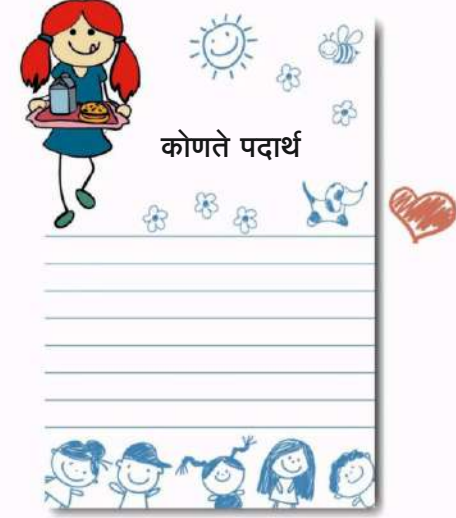 कोणते पदार्थ